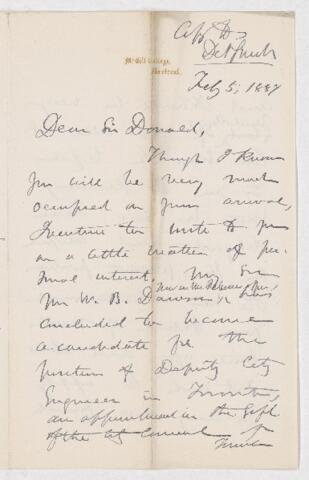 McGill College,
Montreal.
Feby 5, 1887
Dear Sir Donald,
Though I know
you will be very much
occupied on your arrival,
I venture to write to you
on a little matter of per-
sonal interest. My son
Mr W. B. Dawson, has
concluded to become
a candidate for the
position of Deputy City
Engineer in Toronto,
an appointment in the gift
of the City Council of